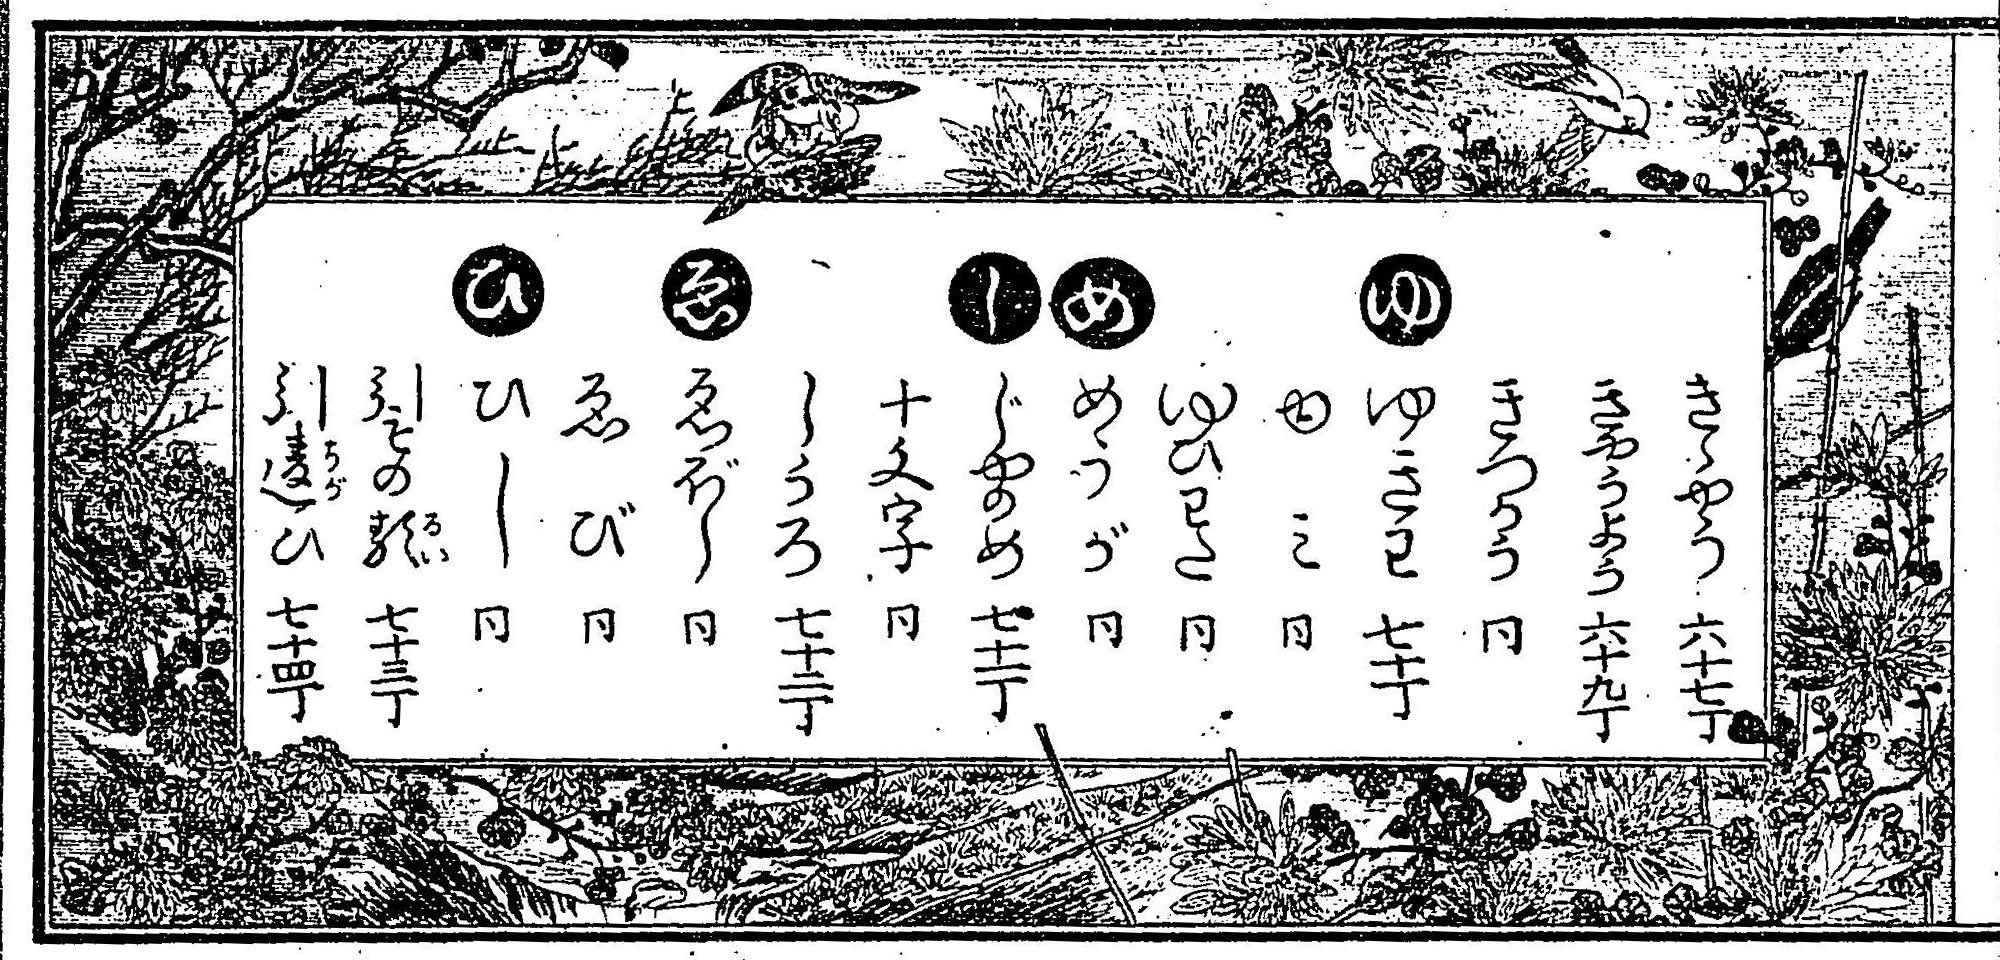 きゝやう 六十七丁
きやうよう 六十九丁
きつかう 同
ゆ
ゆきわ 七十丁
ゆミ 同
ゆひわた 同
め
めうが 同
し
じやのめ 七十一丁
十文字 同
しうろ 七十二丁
ゑ
ゑぼし 同
ゑび 同
ひ
ひし 同
引その類 るい 七十三丁
引違ひ ちが 七十四丁